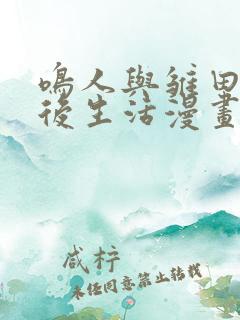 鳴人與雛田
後生活漫畫
咸梓
未經同意禁止轉載